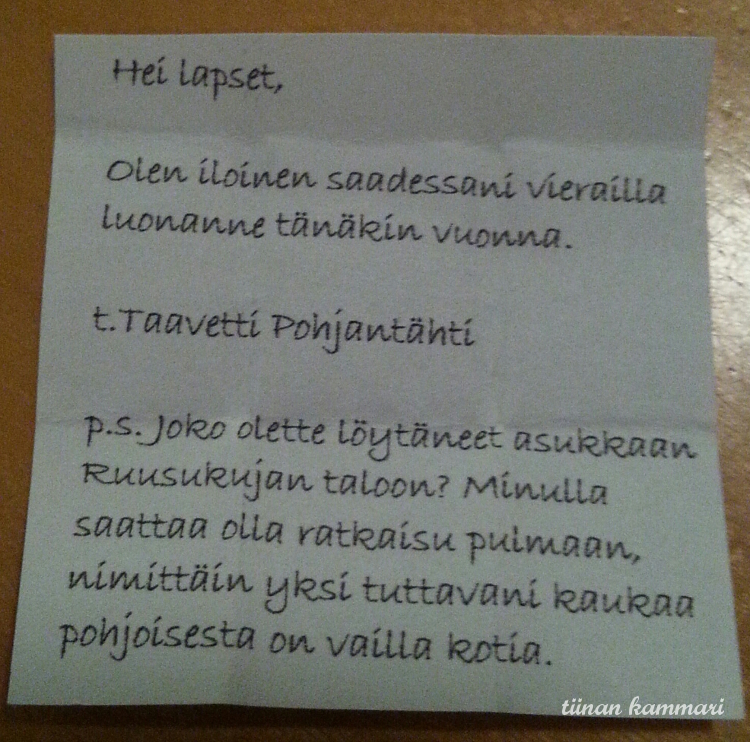 Hei lapset,
Olen iloinen saadessani vierailla
luonanne tänäkin vuonna.
t.Taavetti Pohjantähti
p.s. Joko olette löytäneet asukkaan
Ruusukujan taloon? Minulla
saattaa olla ratkaisu pulmaan,
nimittäin yksi tuttavani kaukaa
pohjoisesta on vailla kotia.
tiinan kammari